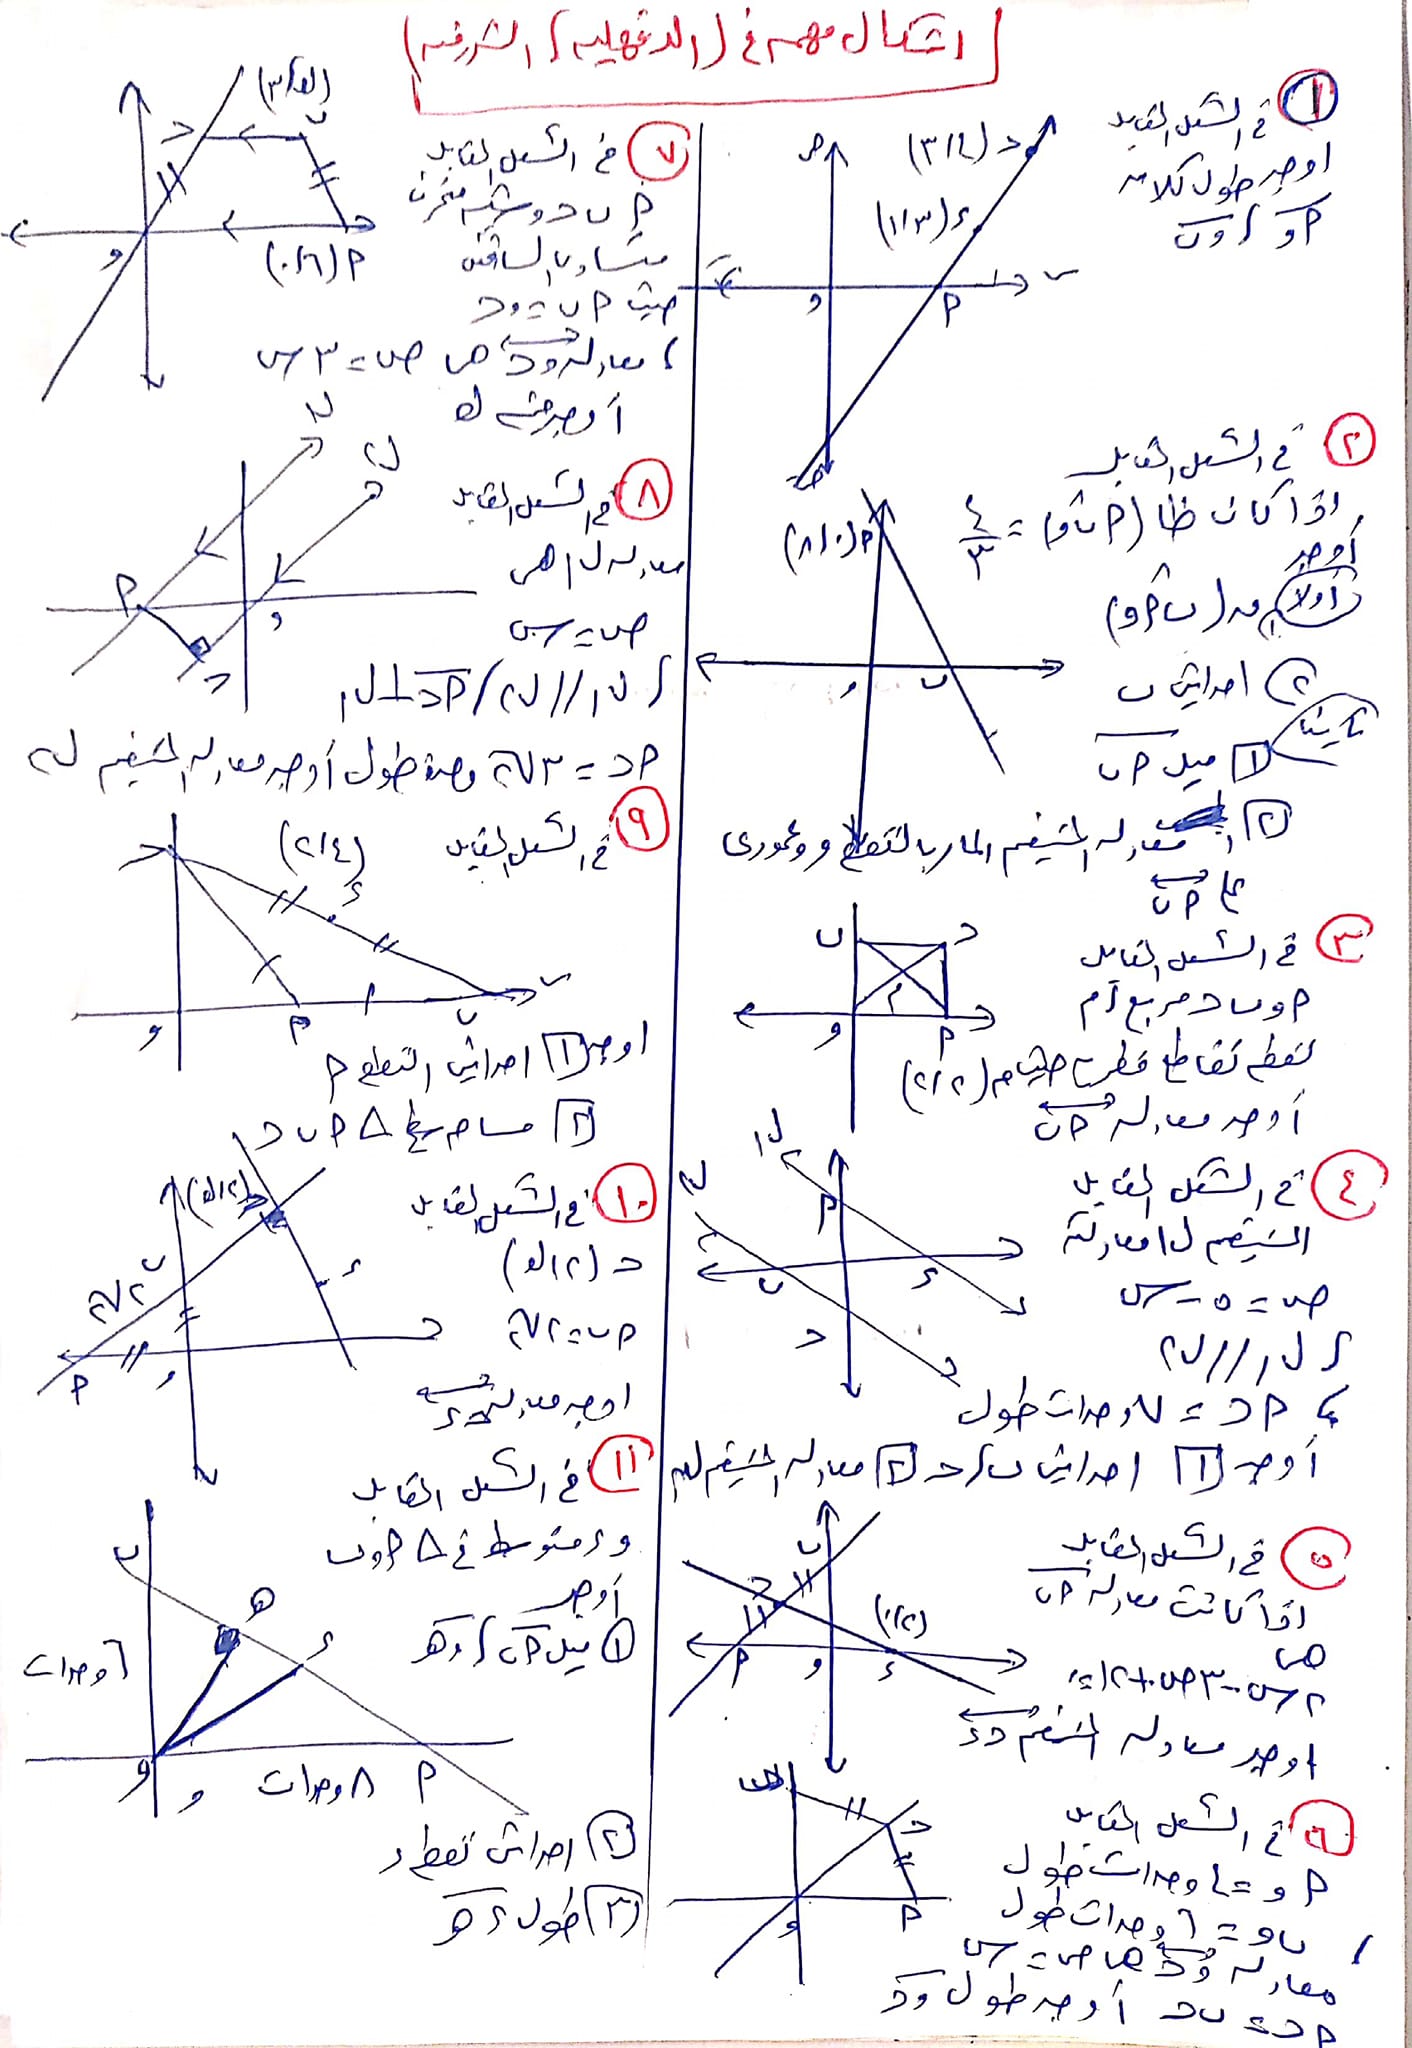 اشكال مهمه في (الدقهليه / الشرقيه)
١ في الشكل المقابل
اوجد طول كلا من
أو / وب
ص
ج (٤/٣)
د (٣/١)
س
أ
و
٢ في الشكل المقابل
إذا كانت ظا (أبو) = ٤/٣
أوجد
أولاً ١ ق (بأو)
٢ احداثى ب
ثانياً
١ ميل أب
٢ معادله المستقيم المار بالنقطة و وعمودى
على أب
أ(٨/٠)
و
ب
٣ في الشكل المقابل
أوب ج مربع / م
نقطه تقاطع قطريه حيث م (٢/٢)
أوجد معادله أب
ب
ج
م
و
أ
٤ في الشكل المقابل
المستقيم ل١ معادلته
ص = ٥ - س
/ ل١ // ل٢
/ أج = ٧ وحدات طول
أوجد ١ احداثى ب / ج ٢ معادله المستقيم ل٢
ل١
ل٢
أ
د
ب
ج
٥ في الشكل المقابل
اذا كانت معادله أب
هى
٢س - ٣ص + ١٢ = ٠
اوجد معادله المستقيم ج د
ب
ج
أ
و
د
٦ في الشكل المقابل
أو = ٤ وحدات طول
/ ب و = ٦ وحدات طول
معادله وج هى ص = س
أج = ب ج أوجد طول وج
ج
و
أ
٧ في الشكل المقابل
أ ب ج و شبه منحرف
متساوى الساقين
حيث أب = وج
/ معادله وج هى ص = ٣س
أوجد قيمه ك
(ك/٣)
ب
ج
و
أ (٦/٠)
٨ في الشكل المقابل
معادله ل١ هى
ص = س
/ ل١ // ل٢ / أج ⊥ ل١
أج = ٣√٢ وحدة طول أوجد معادله المستقيم ل٢
ل٢
ل١
أ
و
ج
٩ في الشكل المقابل
اوجد ١ احداثى النقطه أ
٢ مساحه سطح Δ أ ب ج
(٤/٢)
د
ج
س
ب
أ
و
١٠ في الشكل المقابل
ج (٢/ك)
أب = ٢√٢
اوجد معادله ج د
ج(٢/ك)
ب
٢√٢
د
أ
و
١١ في الشكل المقابل
و د متوسط في Δ أوب
أوجد
١ ميل أب / وه
٢ احداثى نقطه د
٣ طول د ه
ب
ه
د
٦ وحدات
و
٨ وحدات
أ